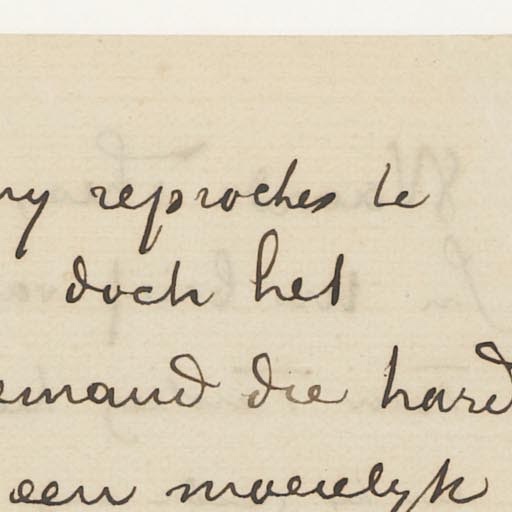 my reproches te
doch het
iemand die hard
een moeielyk